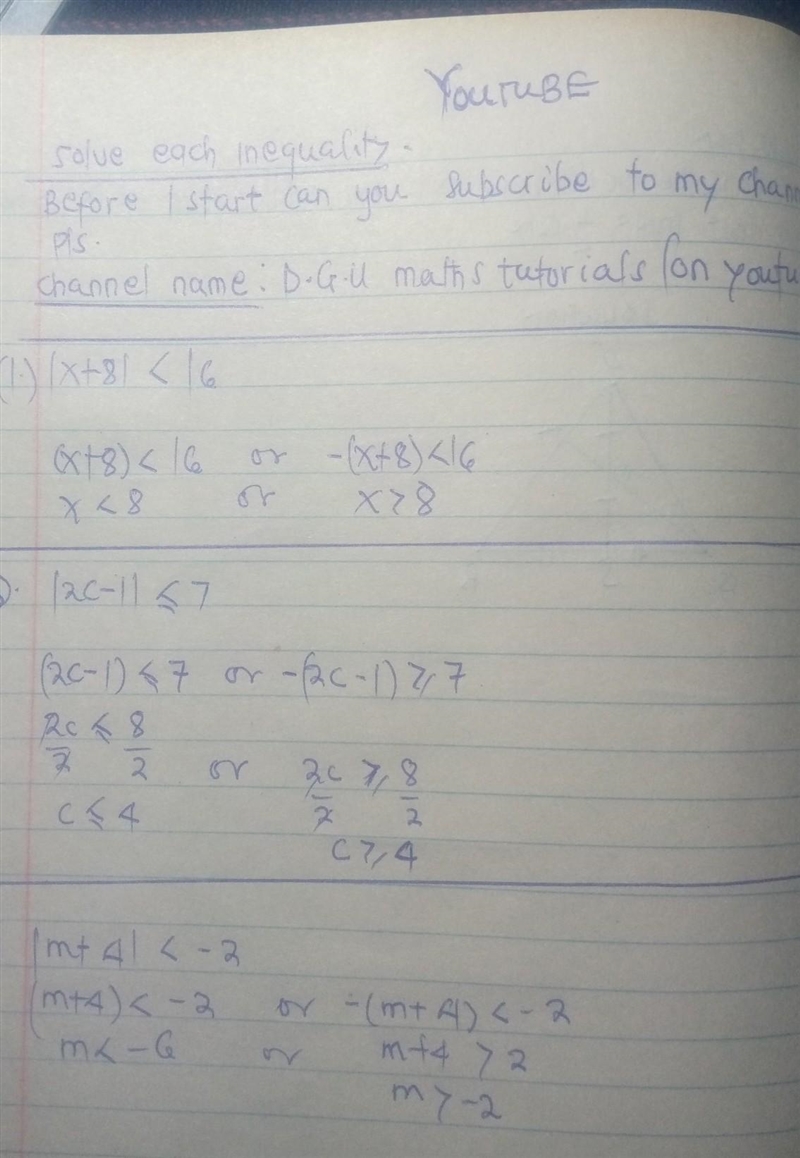 YOUTUBE
Solve each inequality.
Before I start can you subscribe to my
pls.
channel name: D.G.U maths tutorials (on
(1.) |x+8| < 16
(x+8) < 16 or -(x+8) < 16
x < 8 or x > 8
|2c-1| ⩽ 7
(2c-1) ⩽ 7 or -(2c-1) ⩾ 7
2c ⩽ 8
2 2 or 2c ⩾ 8
c ⩽ 4 2 2
c ⩾ 4
|m+4| < -2
(m+4) < -2 or -(m+4) < -2
m < -6 or m+4 > 2
m > -2